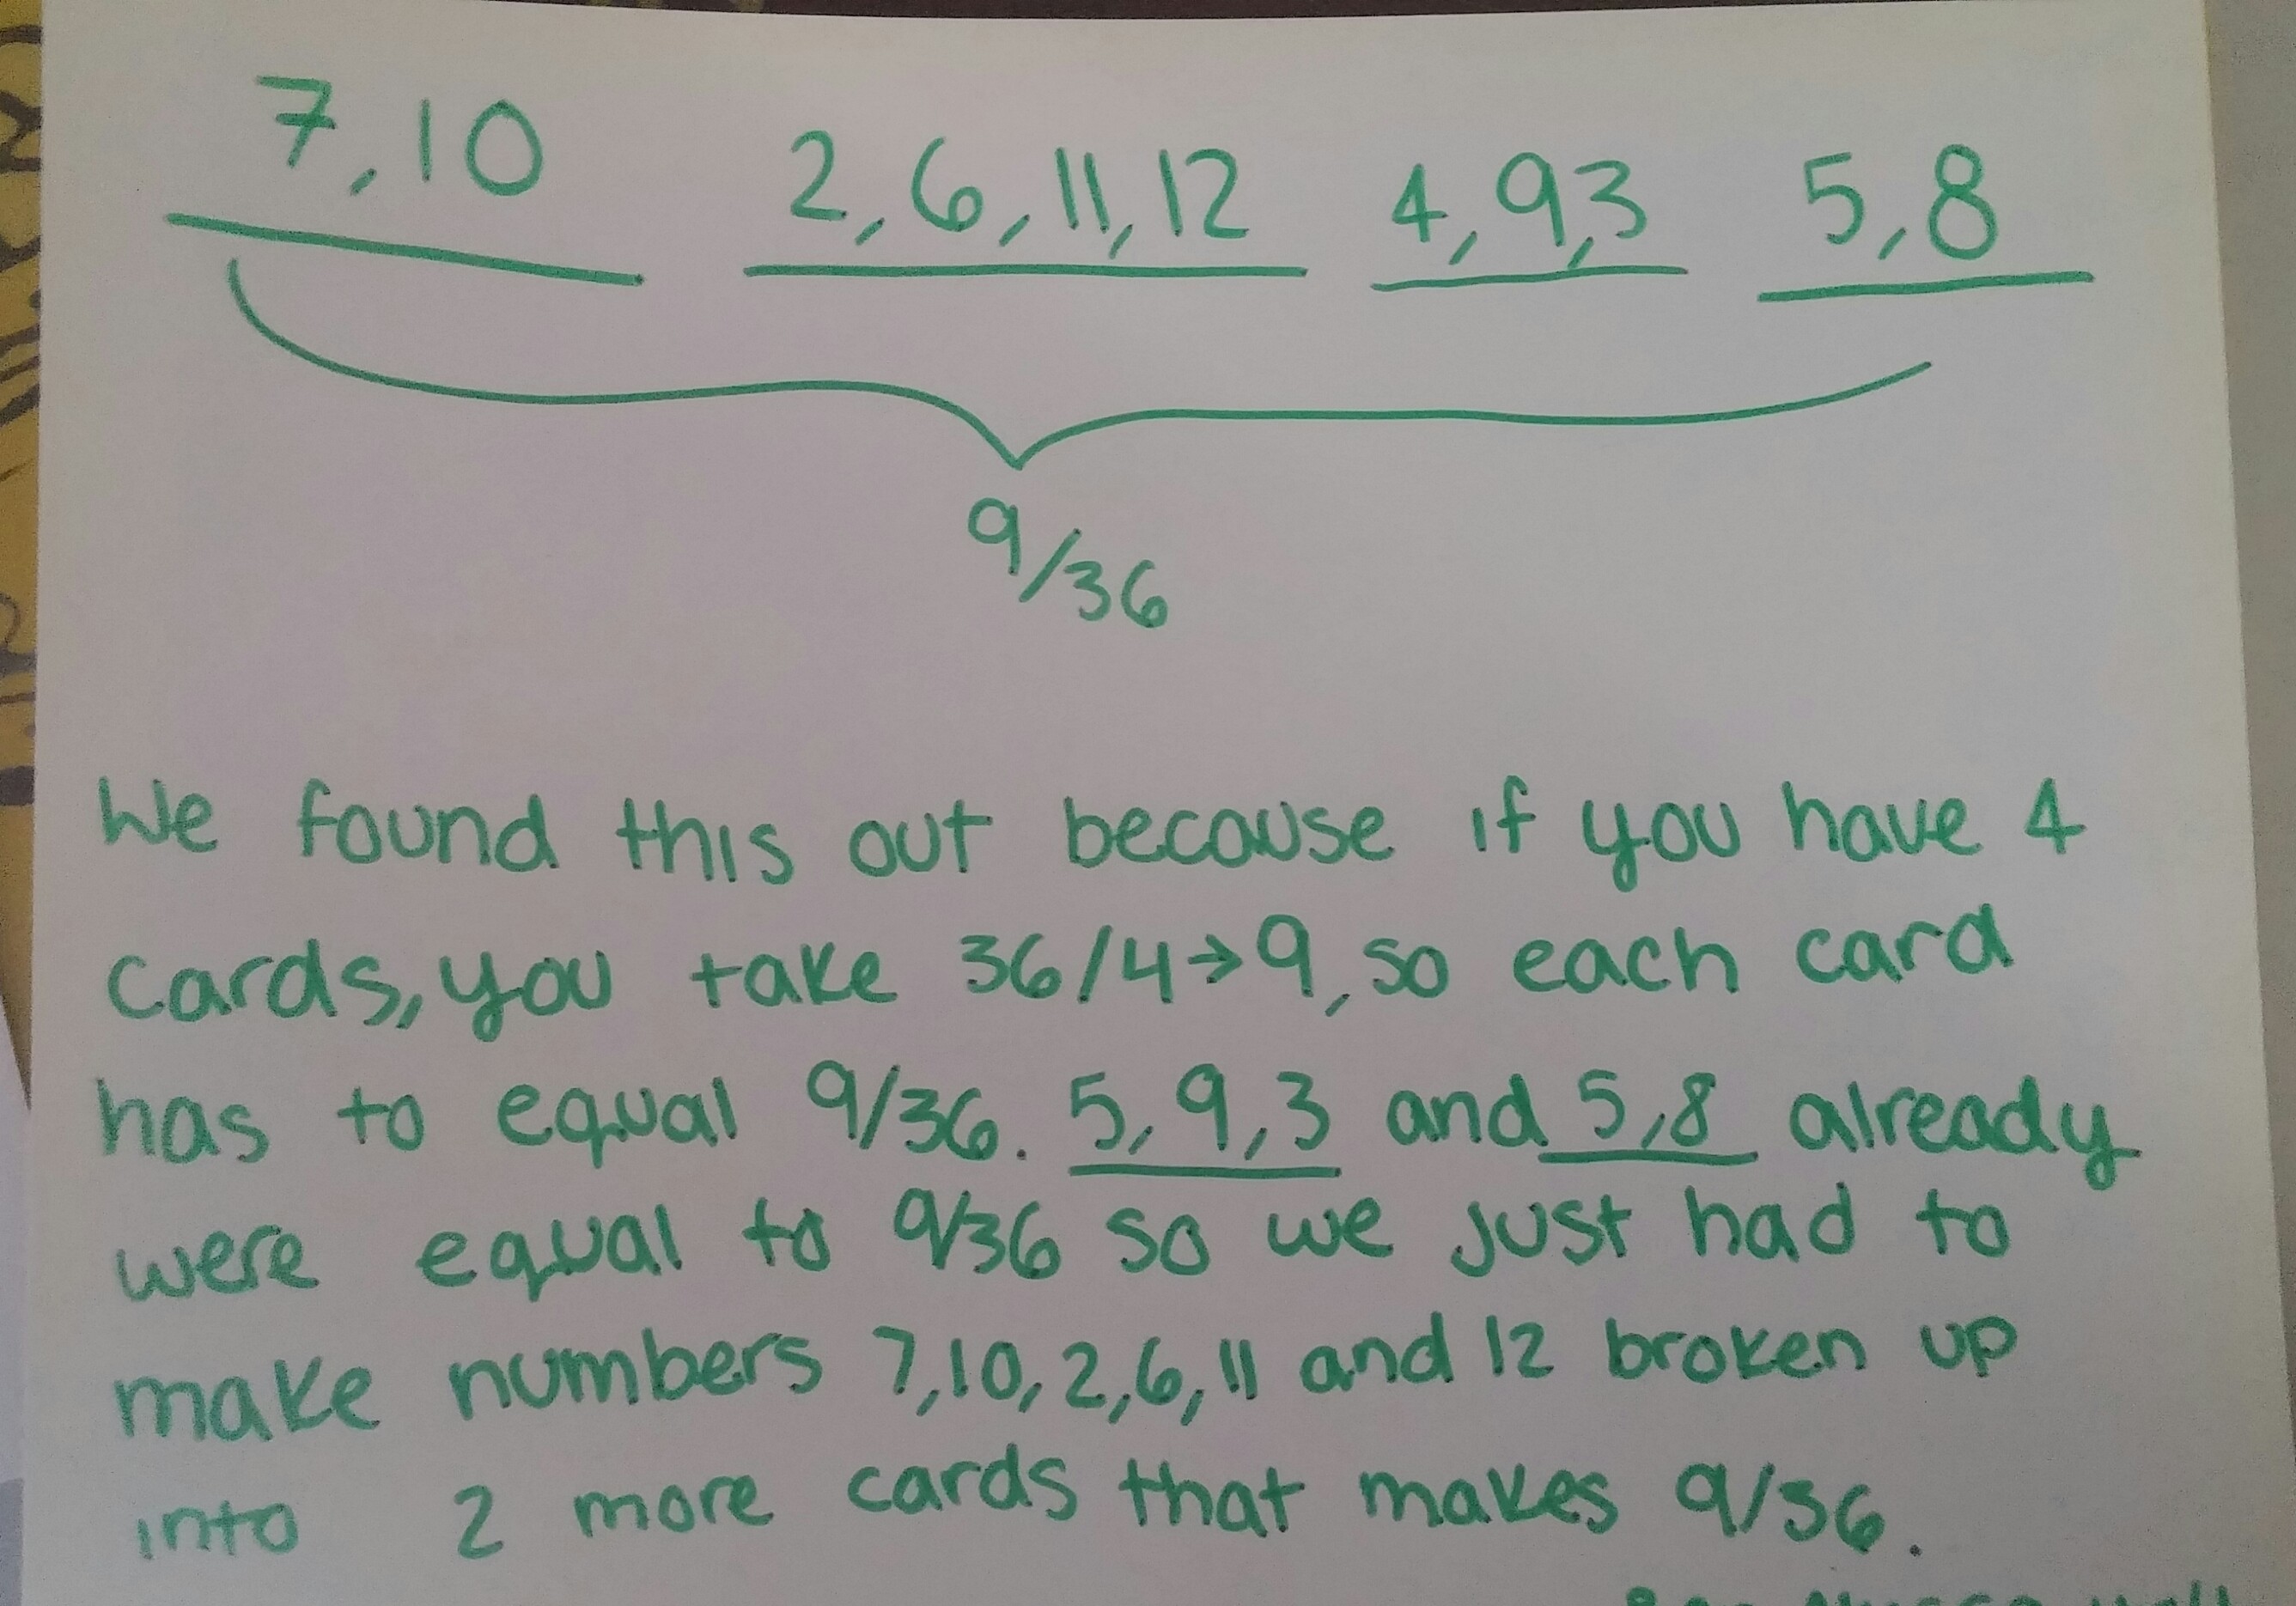 7, 10 2, 6, 11, 12 4, 9, 3 5, 8
9/36
We found this out because if you have 4
cards, you take 36/4→9, so each card
has to equal 9/36. 5, 9, 3 and 5, 8 already
were equal to 9/36 so we just had to
make numbers 7, 10, 2, 6, 11 and 12 broken up
into 2 more cards that makes 9/36.